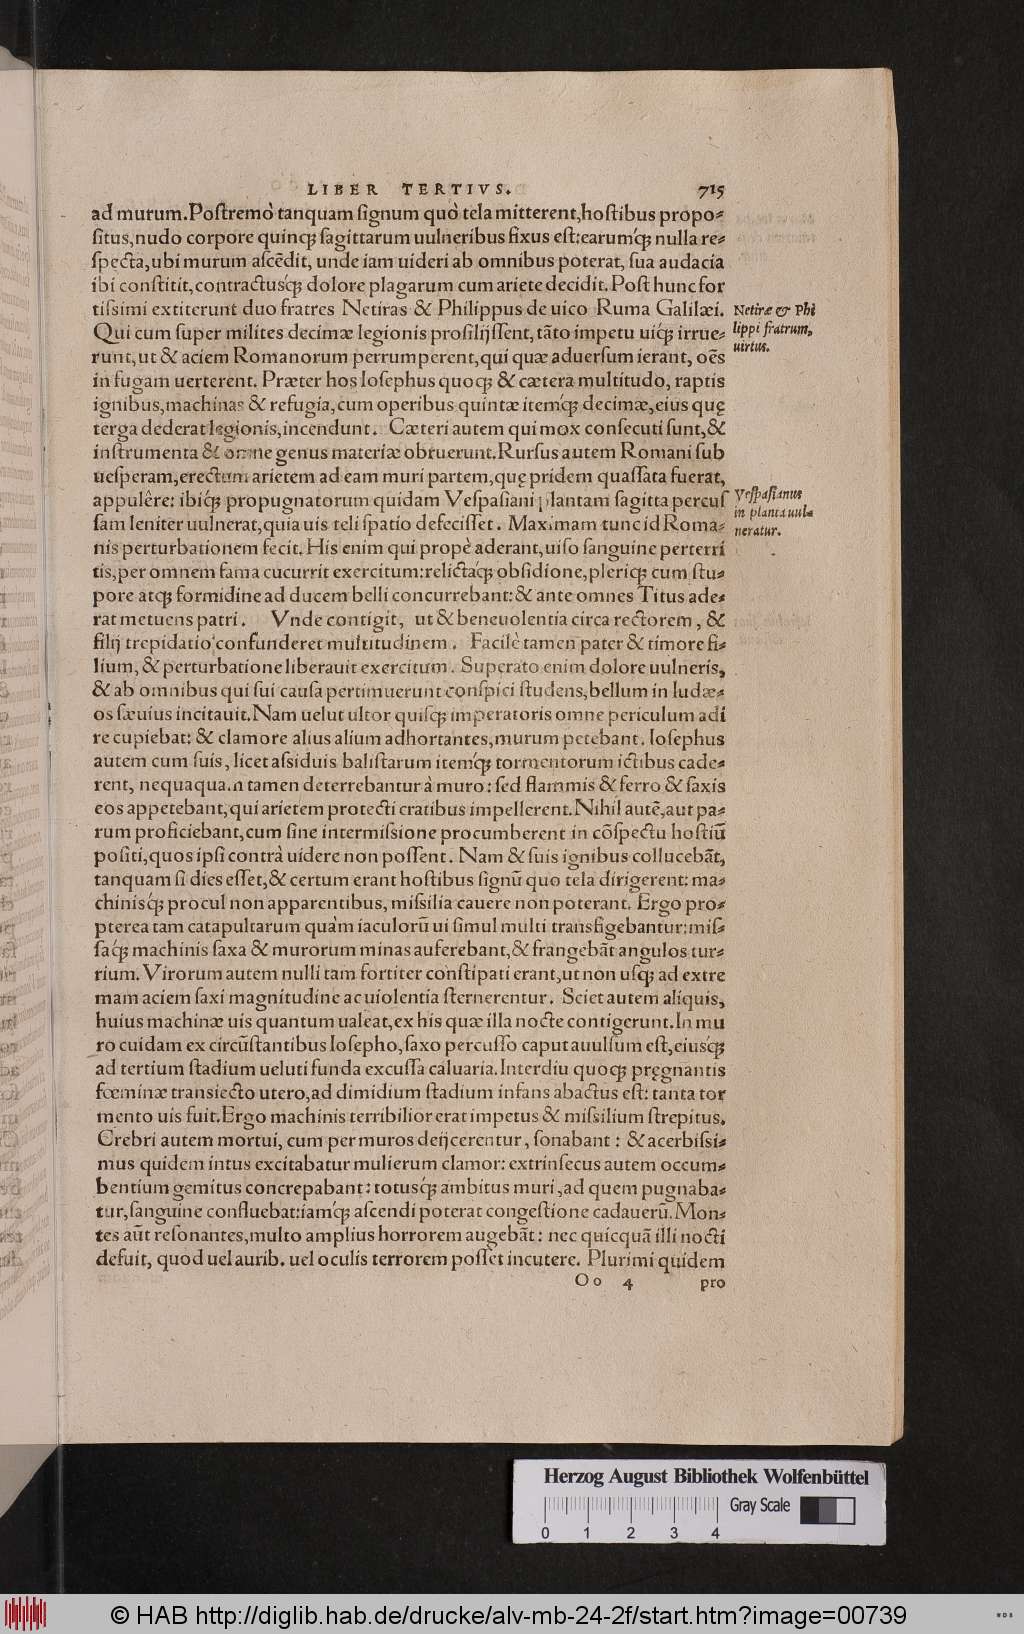 LIBER TERTIVS. 715
ad murum. Poſtremò tanquam ſignum quò tela mitterent, hoſtibus propo⸗
ſitus, nudo corpore quinq; ſagittarum uulneribus fixus eſt: earumq́; nulla re⸗
ſpecta, ubi murum aſcēdit, unde iam uideri ab omnibus poterat, ſua audacia
ibi conſtitit, contractusq́; dolore plagarum cum ariete decidit. Poſt hunc for
tiſsimi extiterunt duo fratres Netiras & Philippus de uico Ruma Galilæi.
Netiræ & Phi
lippi fratrum,
uirtus.
Qui cum ſuper milites decimæ legionis proſilijſſent, tāto impetu uiq́; irrue⸗
runt, ut & aciem Romanorum perrumperent, qui quæ aduerſum ierant, oēs
in fugam uerterent. Præter hos Ioſephus quoq; & cætera multitudo, raptis
ignibus, machinas & refugia, cum operibus quintæ itemq́; decimæ, eius quę
terga dederat legionis, incendunt. Cæteri autem qui mox conſecuti ſunt, &
inſtrumenta & omne genus materiæ obruerunt. Rurſus autem Romani ſub
ueſperam, erectum arietem ad eam muri partem, quę pridem quaſſata fuerat,
appulêre: ibiq́; propugnatorum quidam Veſpaſiani plantam ſagitta percuſ
Veſpaſianus
in planta uul⸗
neratur.
ſam leniter uulnerat, quia uis teli ſpatio defeciſſet. Maximam tunc id Roma⸗
nis perturbationem fecit. His enim qui propè aderant, uiſo ſanguine perterri
tis, per omnem fama cucurrit exercitum: relictaq́; obſidione, pleriq; cum ſtu⸗
pore atq; formidine ad ducem belli concurrebant: & ante omnes Titus ade⸗
rat metuens patri. Vnde contigit, ut & beneuolentia circa rectorem, &
filij trepidatio confunderet multitudinem. Facilè tamen pater & timore fi⸗
lium, & perturbatione liberauit exercitum. Superato enim dolore uulneris,
& ab omnibus qui ſui cauſa pertimuerunt conſpici ſtudens, bellum in Iudæ⸗
os ſæuius incitauit. Nam uelut ultor quiſq; imperatoris omne periculum adi
re cupiebat: & clamore alius alium adhortantes, murum petebant. Ioſephus
autem cum ſuis, licet aſsiduis baliſtarum itemq́; tormentorum ictibus cade⸗
rent, nequaquam tamen deterrebantur à muro: ſed flammis & ferro & ſaxis
eos appetebant, qui arietem protecti cratibus impellerent. Nihil autē, aut pa⸗
rum proficiebant, cum ſine intermiſsione procumberent in cōſpectu hoſtiū
poſiti, quos ipſi contrà uidere non poſſent. Nam & ſuis ignibus collucebāt,
tanquam ſi dies eſſet, & certum erant hoſtibus ſignū quo tela dirigerent: ma⸗
chinisq́; procul non apparentibus, miſsilia cauere non poterant. Ergo pro⸗
pterea tam catapultarum quàm iaculorū ui ſimul multi transfigebantur: miſ⸗
ſaq́; machinis ſaxa & murorum minas auferebant, & frangebāt angulos tur⸗
rium. Virorum autem nulli tam fortiter conſtipati erant, ut non uſq; ad extre
mam aciem ſaxi magnitudine ac uiolentia ſternerentur. Sciet autem aliquis,
huius machinæ uis quantum ualeat, ex his quæ illa nocte contigerunt. In mu
ro cuidam ex circūſtantibus Ioſepho, ſaxo percuſſo caput auulſum eſt, eiusq́;
ad tertium ſtadium ueluti funda excuſſa caluaria. Interdiu quoq; pręgnantis
fœminæ transiecto utero, ad dimidium ſtadium infans abactus eſt: tanta tor
mento uis fuit. Ergo machinis terribilior erat impetus & miſsilium ſtrepitus.
Crebri autem mortui, cum per muros deijcerentur, ſonabant: & acerbiſsi⸗
mus quidem intus excitabatur mulierum clamor: extrinſecus autem occum⸗
bentium gemitus concrepabant: totusq́; ambitus muri, ad quem pugnaba⸗
tur, ſanguine confluebat: iamq́; aſcendi poterat congeſtione cadauerū. Mon⸗
tes aūt reſonantes, multo amplius horrorem augebāt: nec quicquā illi nocti
defuit, quod uel aurib. uel oculis terrorem poſſet incutere. Plurimi quidem
Oo 4 pro
Herzog August Bibliothek Wolfenbüttel
Gray Scale
0 1 2 3 4
© HAB http://diglib.hab.de/drucke/alv-mb-24-2f/start.htm?image=00739